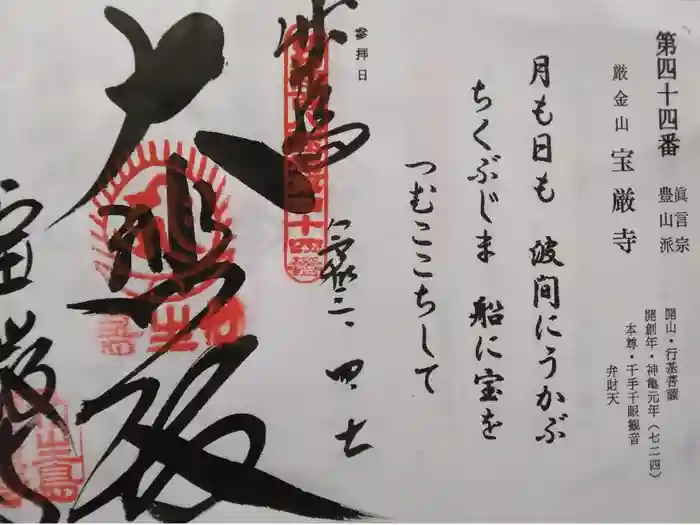 第四十四番
眞言宗
豊山派
厳金山 宝厳寺
開山・行基菩薩
開創年・神亀元年(七二四)
本尊・千手千眼観音
弁財天
月も日も 波間にうかぶ
ちくぶじま 船に宝を
つむここちして
参拝日
二、四、七
大悲殿
宝厳寺